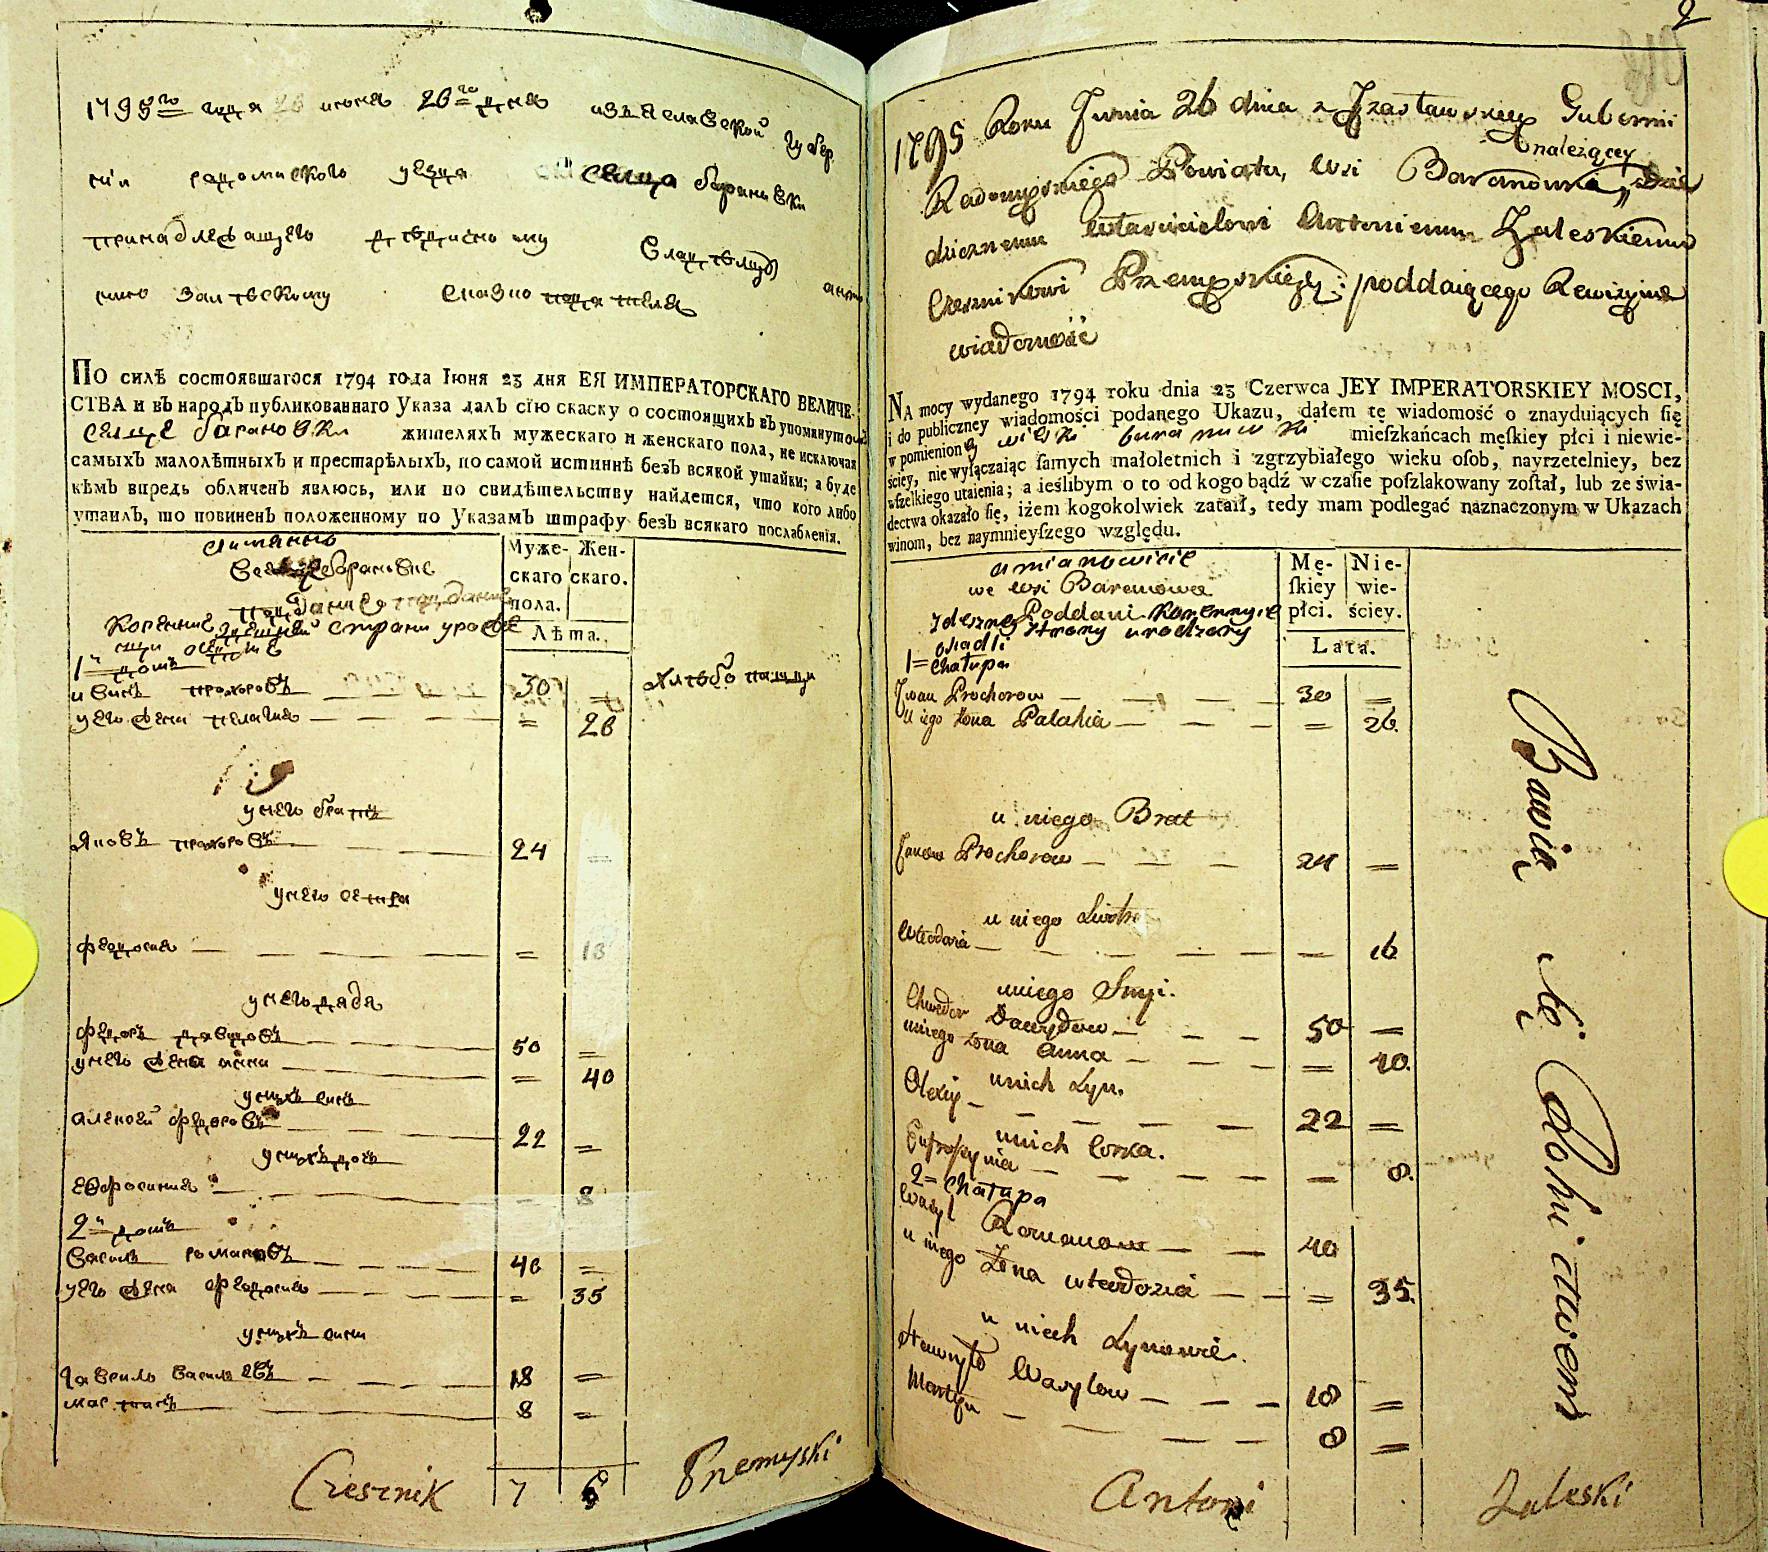 1795го года июня 26го дня изъяславской губер
нiи радомиского уезда селца барановки
принадлежащего
сказко
По силѣ состоявшагося 1794 года Iюня 23 дня ЕЯ ИМПЕРАТОРСКАГО ВЕЛИЧЕ-
СТВА и въ народъ публикованнаго Указа далъ сїю скаску о состоящихъ въ упомянутом
селце барановки жителяхъ мужескаго и женскаго пола, не исключая
самыхъ малолѣтныхъ и престарѣлыхъ, по самой истиннѣ безъ всякой утайки; а буде
кѣмъ впредь обличенъ явлюсь, или по свидѣтельству найдется, что кого либо
утаилъ, то повиненъ положенному по Указамъ штрафу безъ всякаго послабленiя.
имянно
Муже-
скаго
пола.
Жен-
скаго.
Лѣта.
Коренние здешней страни
1й домъ
иванъ прохоровъ 30 = хлебопашци
у его жена пелагия = 26
у него братъ
яковъ прохоровъ 24 =
у него сестра
федосия =
у него дядя
федоръ давидовъ 50 =
у него жена анна = 40
у нихъ синъ
алексей федоровъ 22 =
у нихъ дочь
евфросиния 8
2й домъ
василь романовъ 40 =
у его жена федосия = 35
у нихъ сини
гаврило василевъ 18 =
мартинъ 8 =
7 6
Czesznik Przemyski
2
1795 Roku Junia 26 dnia z Jzasławskiey Gubernii
Radomyskiego Powiatu, wsi Baranowka należącey Dzie
dzicznemu Właścicielowi Antoniemu Zaleskiemu
Czesznikowi Przemyskiey: poddaiącego Rewizyina
wiadomość
NA mocy wydanego 1794 roku dnia 23 Czerwca JEY IMPERATORSKIEY MOSCI,
i do publiczney wiadomości podanego Ukazu, dałem tę wiadomość o znayduiących ſię
w pomienioney wioski baranuwki mieſzkańcach męſkiey płci i niewie-
ściey, nie wyłączaiąc ſamych małoletnich i zgrzybiałego wieku oſob, nayrzetelniey, bez
wſzelkiego utaienia; a ieślibym o to od kogo bądź w czaſie poſzlakowany zoſtał, lub ze świa-
dectwa okazało ſię, iżem kogokolwiek zataił, tedy mam podlegać naznaczonym w Ukazach
winom, bez naymnieyſzego względu.
amianowicie
we wsi Baranowce
Poddani
strony urodzony
osadli
Mę-
ſkiey
płci.
Nie-
wie-
ściey.
Lata.
1= Chałupa
Jwan Prochorow 30 =
u iego żona Palahia = 26.
u niego Brat
Jakow Prochorow 24 =
u niego Siostra
— 16
u niego Stryi.
Chwedor Dawydow 50 =
u niego żona Anna = 40.
u nich Syn.
Olexiy 22 =
u nich Corka.
Eufrosynia — 8.
2= Chałupa
Wasyl Romanow 40
u niego Żona = 35.
u nich Synowie.
Hawryło Wasylow 18 =
Martyn 8 =
Bawią się Rolnictwem
Antoni Zaleski